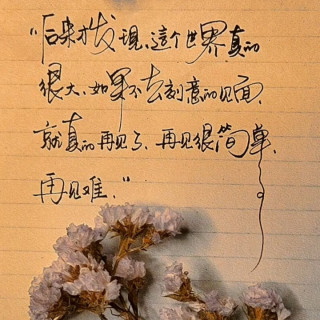 “后来才发现、這个世界真的
很大、如果不去刻意的见面、
就真的再见了、再见很简单、
再见难、”